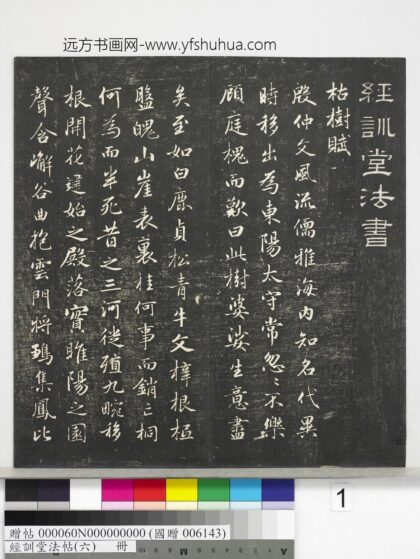 远方书画网-www.yfshuhua.com
經訓堂法書
枯樹賦
殷仲文風流儒雅海內知名代異
時移出為東陽太守常忽〻不樂
顧庭槐而歎曰此樹婆娑生意盡
矣至如白鹿貞松青牛文梓根柢
盤魄山崖表裏桂何事而銷亡桐
何為而半死昔之三河徙殖九畹移
根開花建始之殿落實睢陽之園
聲含嶰谷曲抱雲門將鶵集鳳比
1
贈帖 000060N000000000 (國贈 006143)
經訓堂法帖(六) 冊